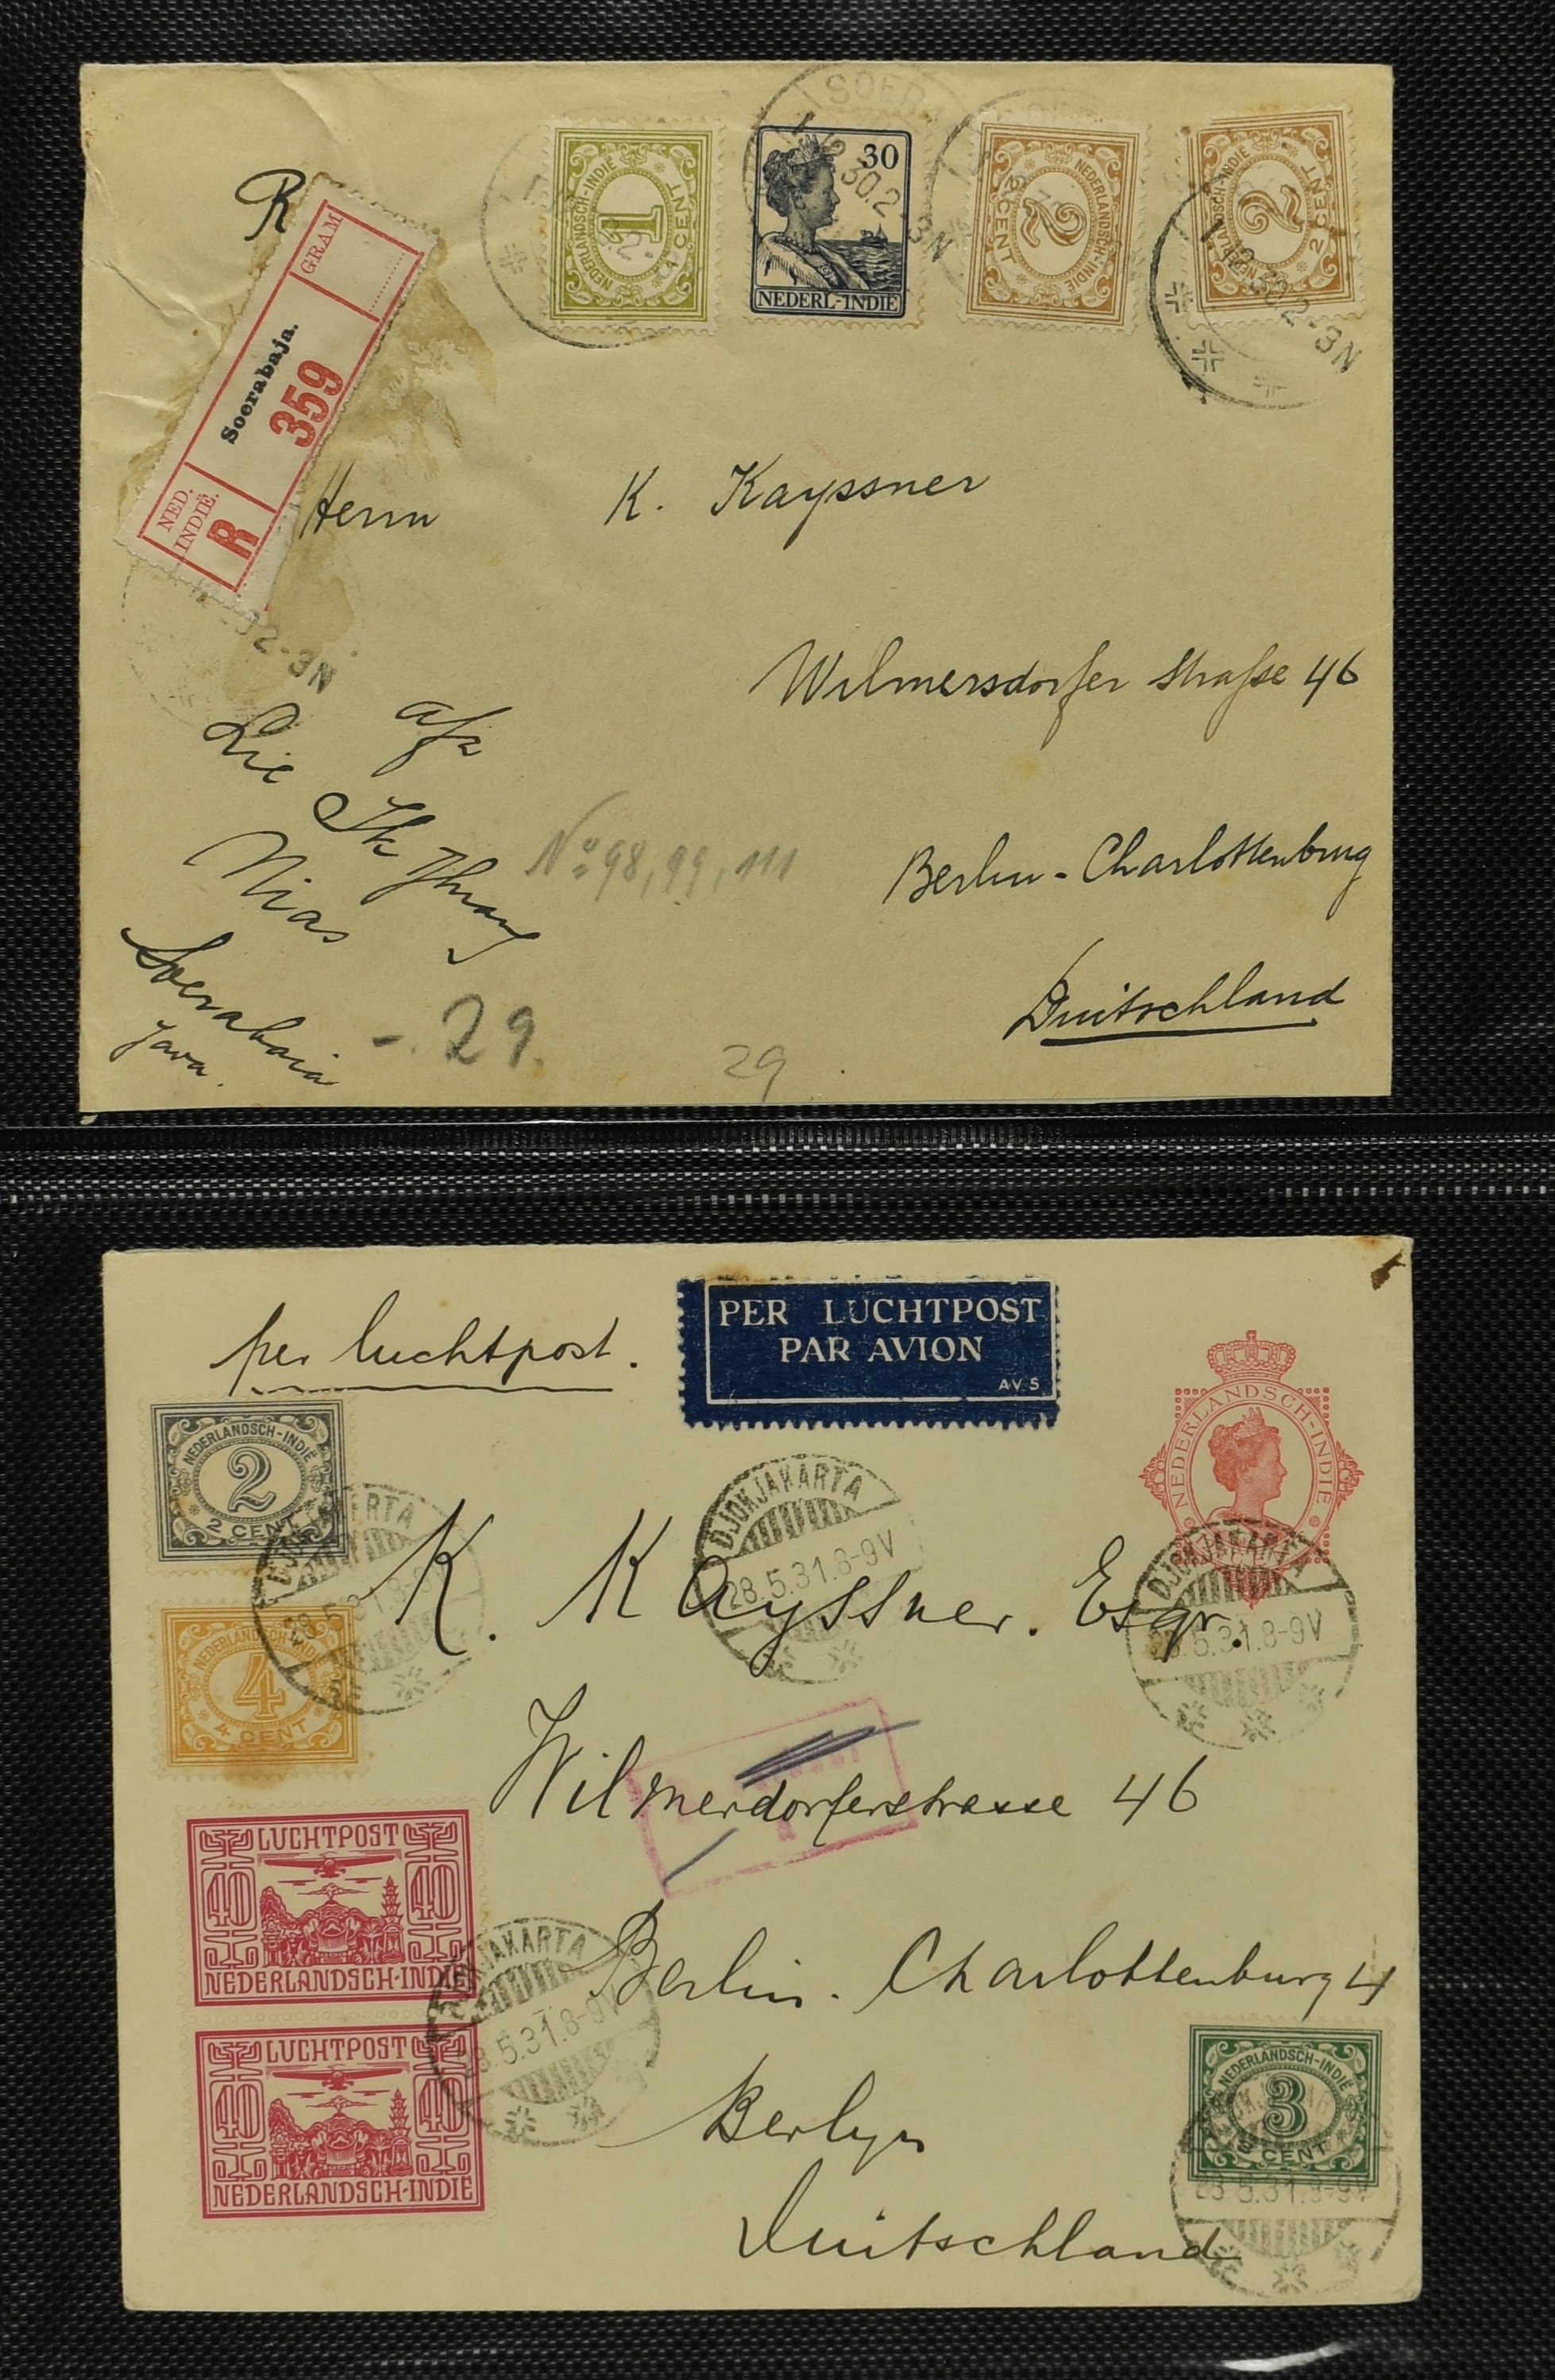 R
NED. INDIË.
R
Soerabaja.
359
GRAM
NEDERLANDSCH-INDIE
1
1 CENT
SOERA
30.2-3N
30
NEDERL-INDIE
NEDERLANDSCH-INDIE
2
2 CENT
NEDERLANDSCH-INDIE
2
2 CENT
30.2-3N
2-3N
Herrn K. Kayssner
Wilmersdorfer Straße 46
Berlin-Charlottenburg
Duitschland
Lie
Nias
Soerabaia
Java.
No 98, 99, 111
- . 29.
29
per luchtpost.
PER LUCHTPOST
PAR AVION
AVS
NEDERLANDSCH-INDIE
NEDERLANDSCH-INDIE
2
2 CENT
DJOKJAKARTA
28.5.31.8-9V
DJOKJAKARTA
28.5.31.8-9V
K. Kayssner. Esqr.
NEDERLANDSCH-INDIE
4
4 CENT
Wilmerdorferstrasse 46
LUCHTPOST
40 40
NEDERLANDSCH-INDIE
DJOKJAKARTA
28.5.31.8-9V
Berlin-Charlottenburg 4
LUCHTPOST
40 40
NEDERLANDSCH-INDIE
Berlyn
NEDERLANDSCH-INDIE
3
3 CENT
28.5.31.8-9V
Duitschland